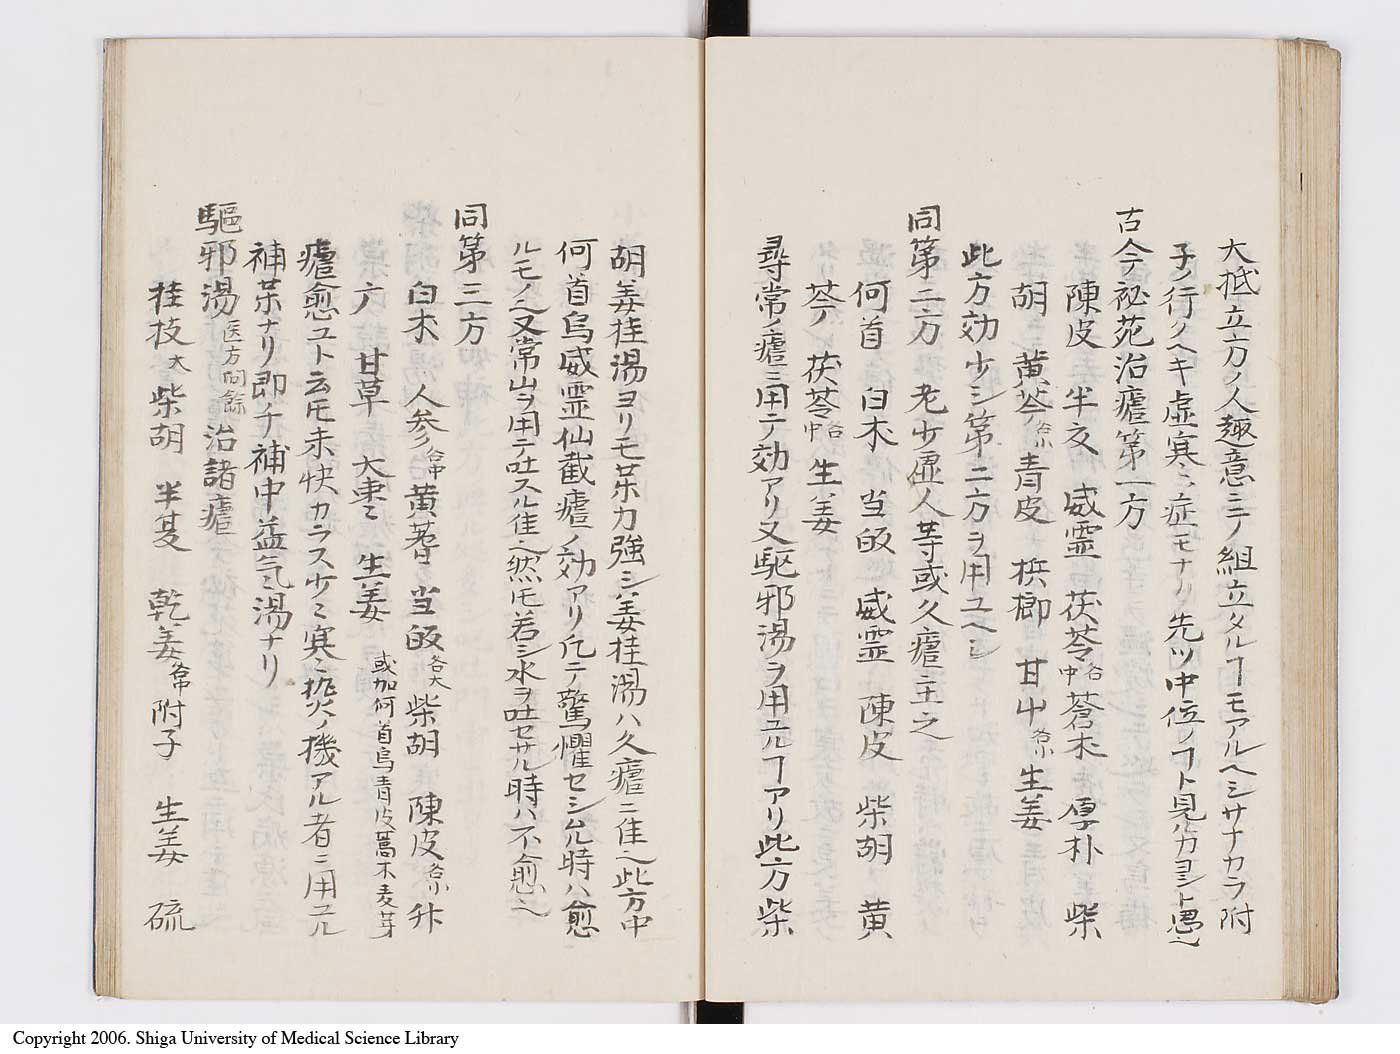 大抵立方ノ人趣意ニテ組立タルヿモアルヘシサナカラ附
子ノ行ノヘキ虚寒ノ症モナク先ツ中位ノフト見ルカヨシト愚ヘ
古今秘苑治瘧第一方
陳皮 半夏 威霊 茯苓各中 蒼朮 厚朴 柴
胡 黄芩各小 青皮 梹榔 甘艸各小 生姜
此方効少シ第二方ヲ用ユヘシ
同第二方 老少虚人等或久瘧主之
何首 白朮 当皈 威霊 陳皮 柴胡 黄
芩 茯苓各中 生姜
尋常ノ瘧ニ用テ効アリ又駆邪湯ヲ用ユルヿアリ此方柴
胡姜桂湯ヨリモ茱力強シ姜桂湯ハ久瘧ニ隹ヘ此方中
何首烏威霊仙截瘧ノ効アリ凡テ驚懼セシムル時ハ愈
ルモノ之又常山ヲ用テ吐スル隹ヘ然𪜈若シ水ヲ吐セサル時ハ不愈之
同第三方
白朮 人参各中 黄耆 当皈各大 柴胡 陳皮各小 升
广 甘草 大棗 生姜 或加何首烏青皮蒿朮麦芽
瘧愈ユト云𪜈未快カラス少々寒熱機アル者ニ用ユル
補茱ナリ即チ補中益気湯ナリ
驅邪湯 医方問餘 治諸瘧
桂枝大 柴胡 半夏 乾姜各中 附子 生姜 硫